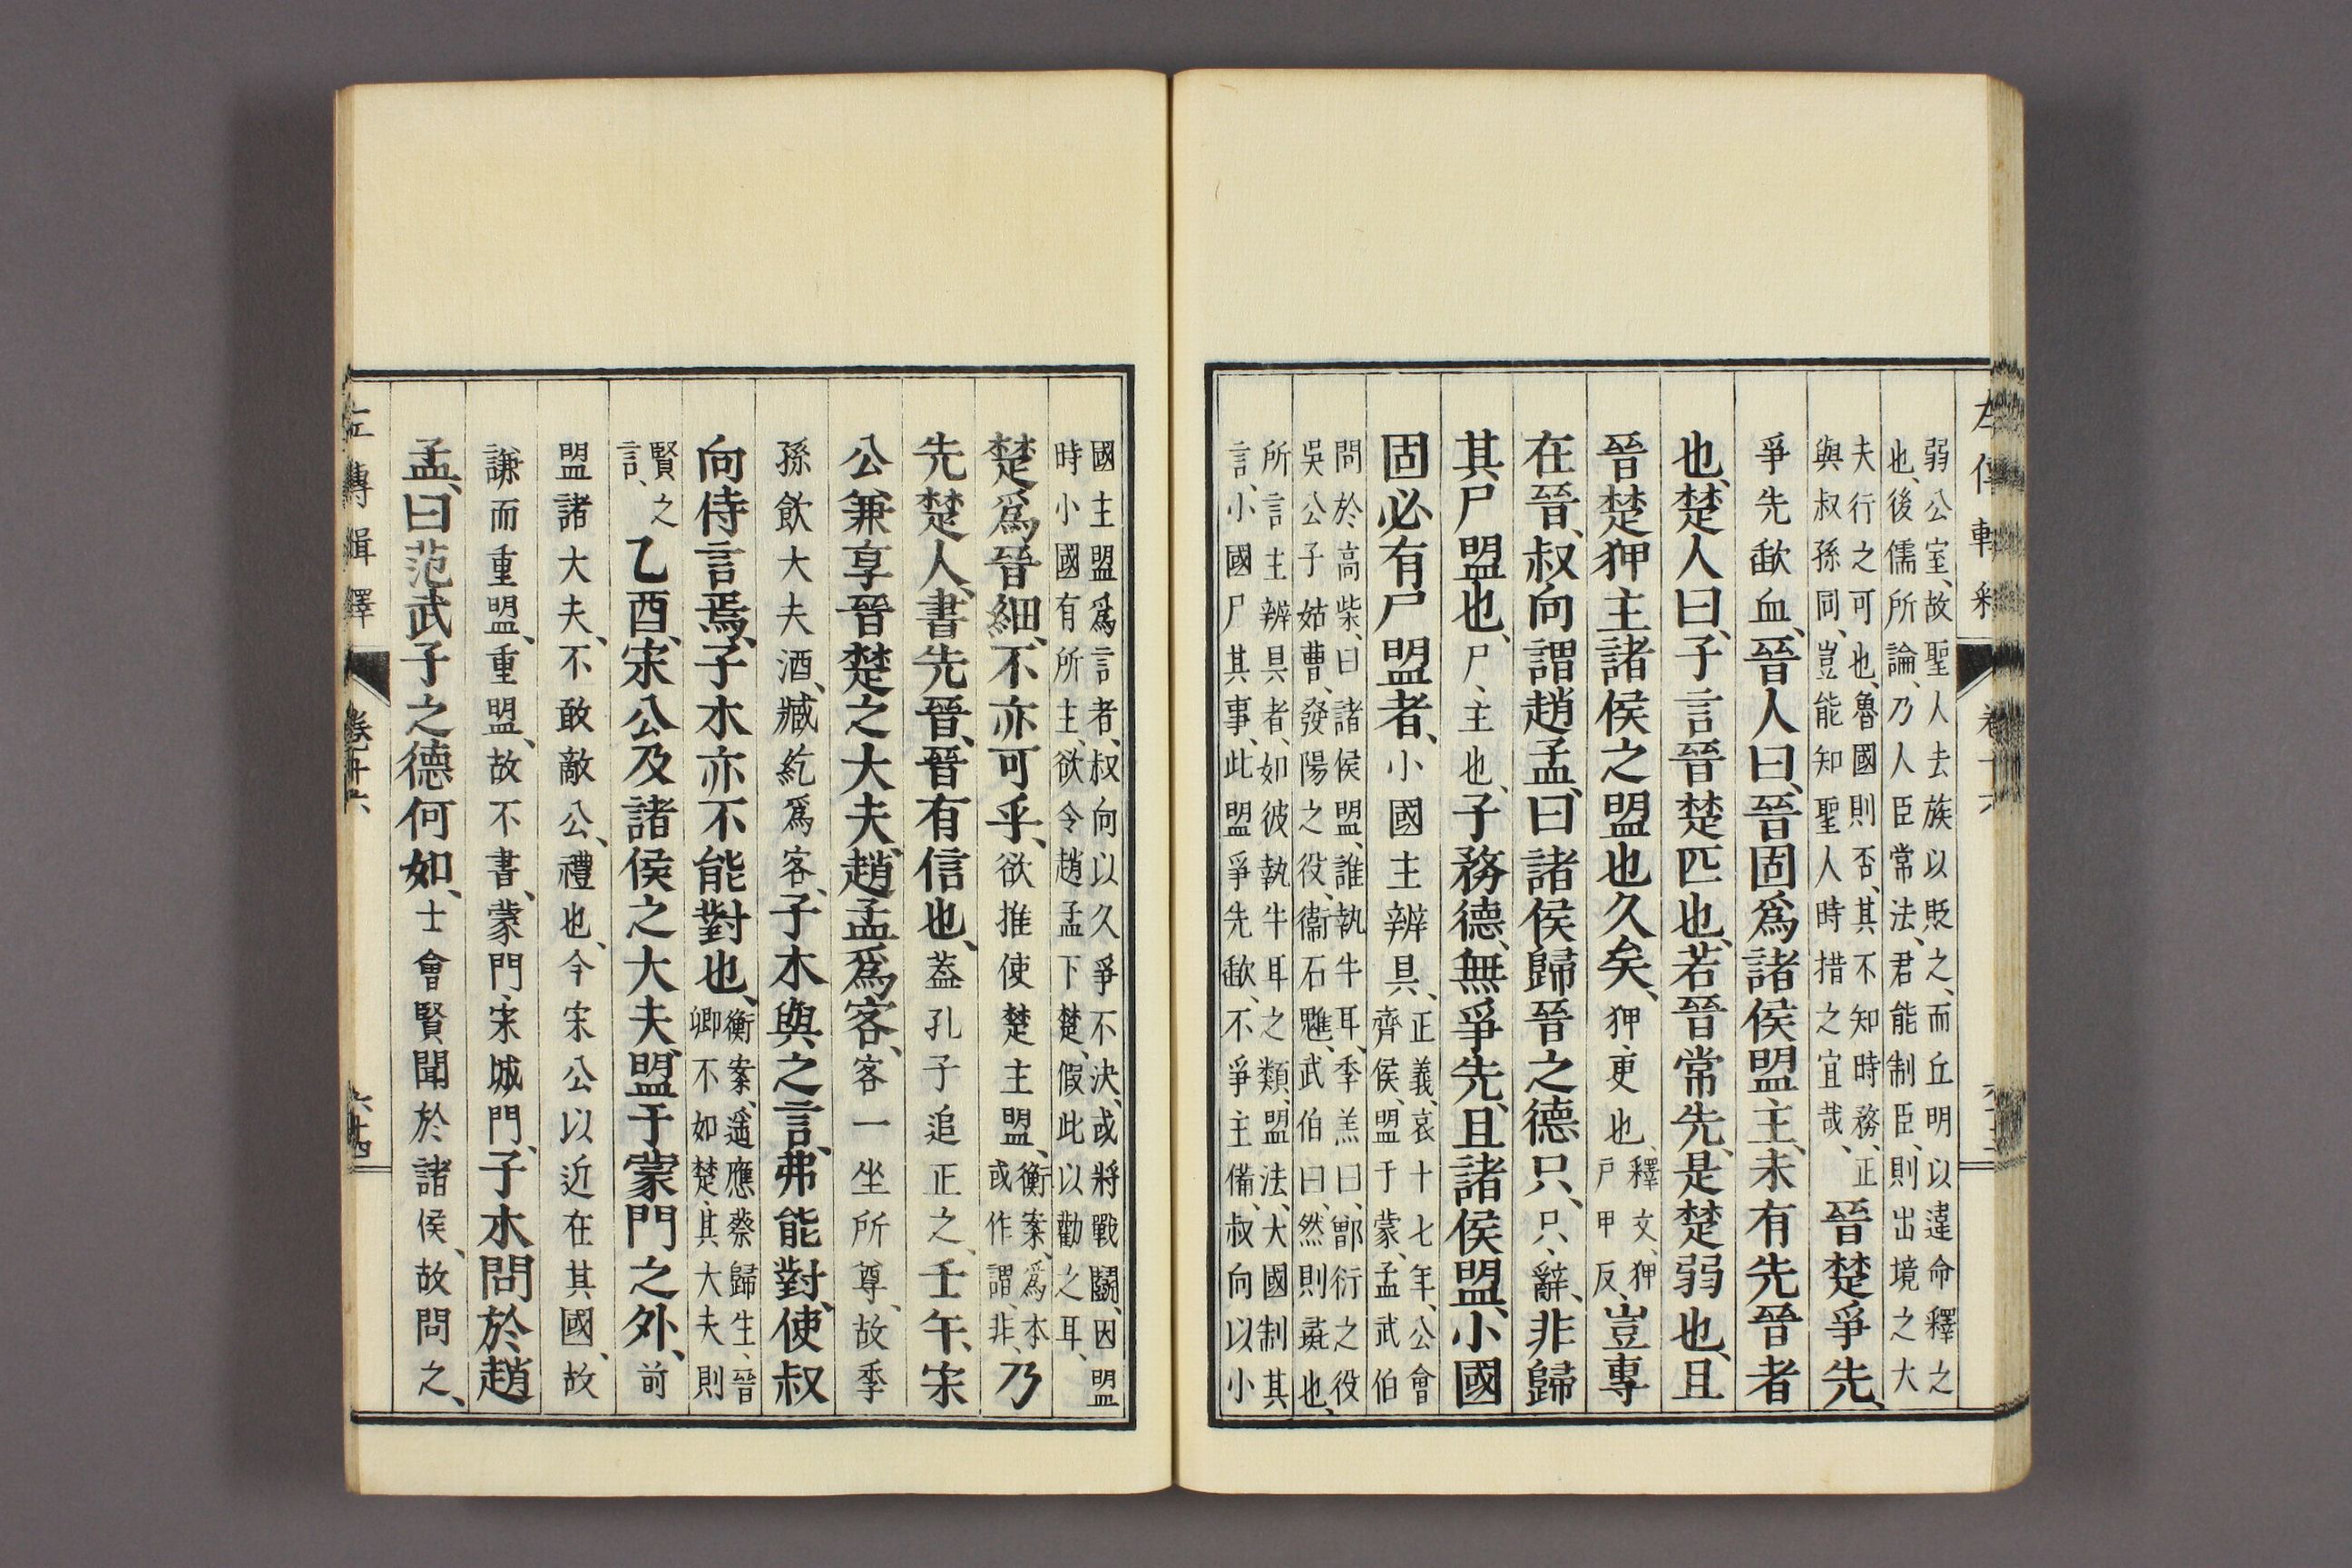 弱公室、故聖人去族以貶之、而丘明以違命釋之
也、後儒所論、乃人臣常法、君能制臣、則出境之大
夫行之可也、魯國則否、其不知時務、正
與叔孫同、豈能知聖人時措之宜哉、
晉楚爭先、
爭先歃血、晉人曰、晉固爲諸侯盟主、未有先晉者
也、楚人曰、子言晉楚匹也、若晉常先、是楚弱也、且
晉楚狎主諸侯之盟也久矣、狎、更也、
釋文、狎
戶甲反、
豈專
在晉、叔向謂趙孟、曰諸侯歸晉之德只、只、辭、非歸
其尸盟也、尸、主也、子務德、無爭先、且諸侯盟、小國
固必有尸盟者、小國主辨具、
正義、哀十七年、公會
齊侯、盟于蒙、孟武伯
問於高柴、曰諸侯盟、誰執牛耳、季羔曰、鄫衍之役
吳公子姑曹、發陽之役、衞石魋、武伯曰、然則彘也、
所言主辨具者、如彼執牛耳之類、盟法、大國制其
言、小國尸其事、此盟爭先歃、不爭主備、叔向以小
國主盟爲言者、叔向以久爭不決、或將戰鬭、因盟
時小國有所主、欲令趙孟下楚、假此以勸之耳、
楚爲晉細、不亦可乎、欲推使楚主盟、
衡案、爲本
或作謂、非、
乃
先楚人、書先晉、晉有信也、葢孔子追正之、壬午、宋
公兼享晉楚之大夫、趙孟爲客、客一坐所尊、故季
孫飲大夫酒、臧紇爲客、子木與之言、弗能對、使叔
向侍言焉、子木亦不能對也、
衡案、遥應蔡歸生、晉
卿不如楚、其大夫則
賢之
言、
乙酉、宋公及諸侯之大夫、盟于蒙門之外、前
盟諸大夫、不敢敵公、禮也、今宋公以近在其國、故
謙而重盟、重盟、故不書、蒙門、宋城門、子木問於趙
孟、曰范武子之德何如、士會賢聞於諸侯、故問之、
左傳輯釋
卷十六
六十四